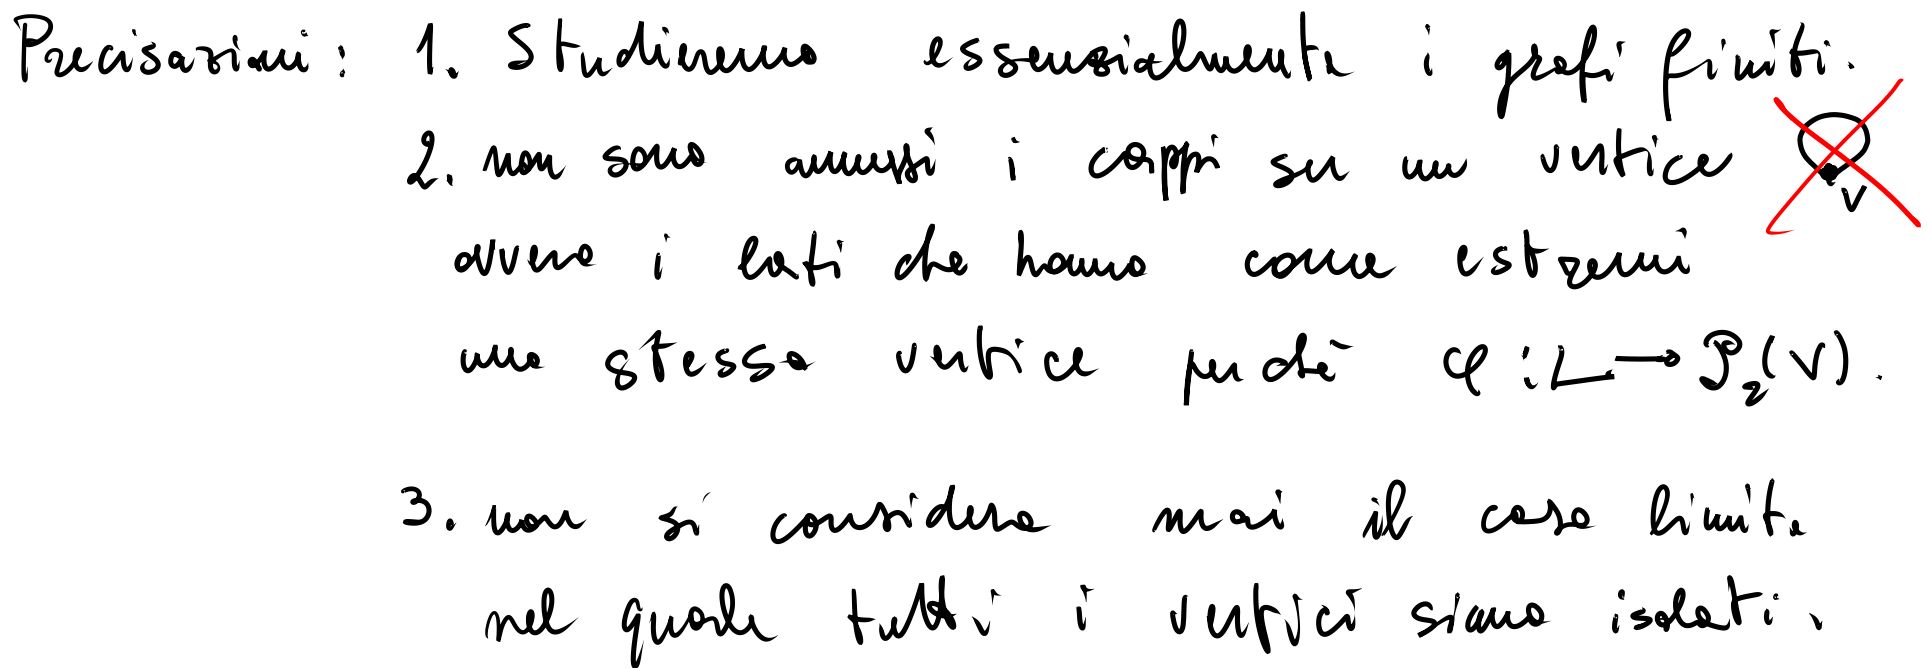 Precisazioni: 1. Studieremo essenzialmente i grafi finiti.
2. non sono ammessi i cappi su un vertice
v
ovvero i lati che hanno come estremi
uno stesso vertice perchè φ : L → P₂(V).
3. non si considera mai il caso limite
nel quale tutti i vertici siano isolati.